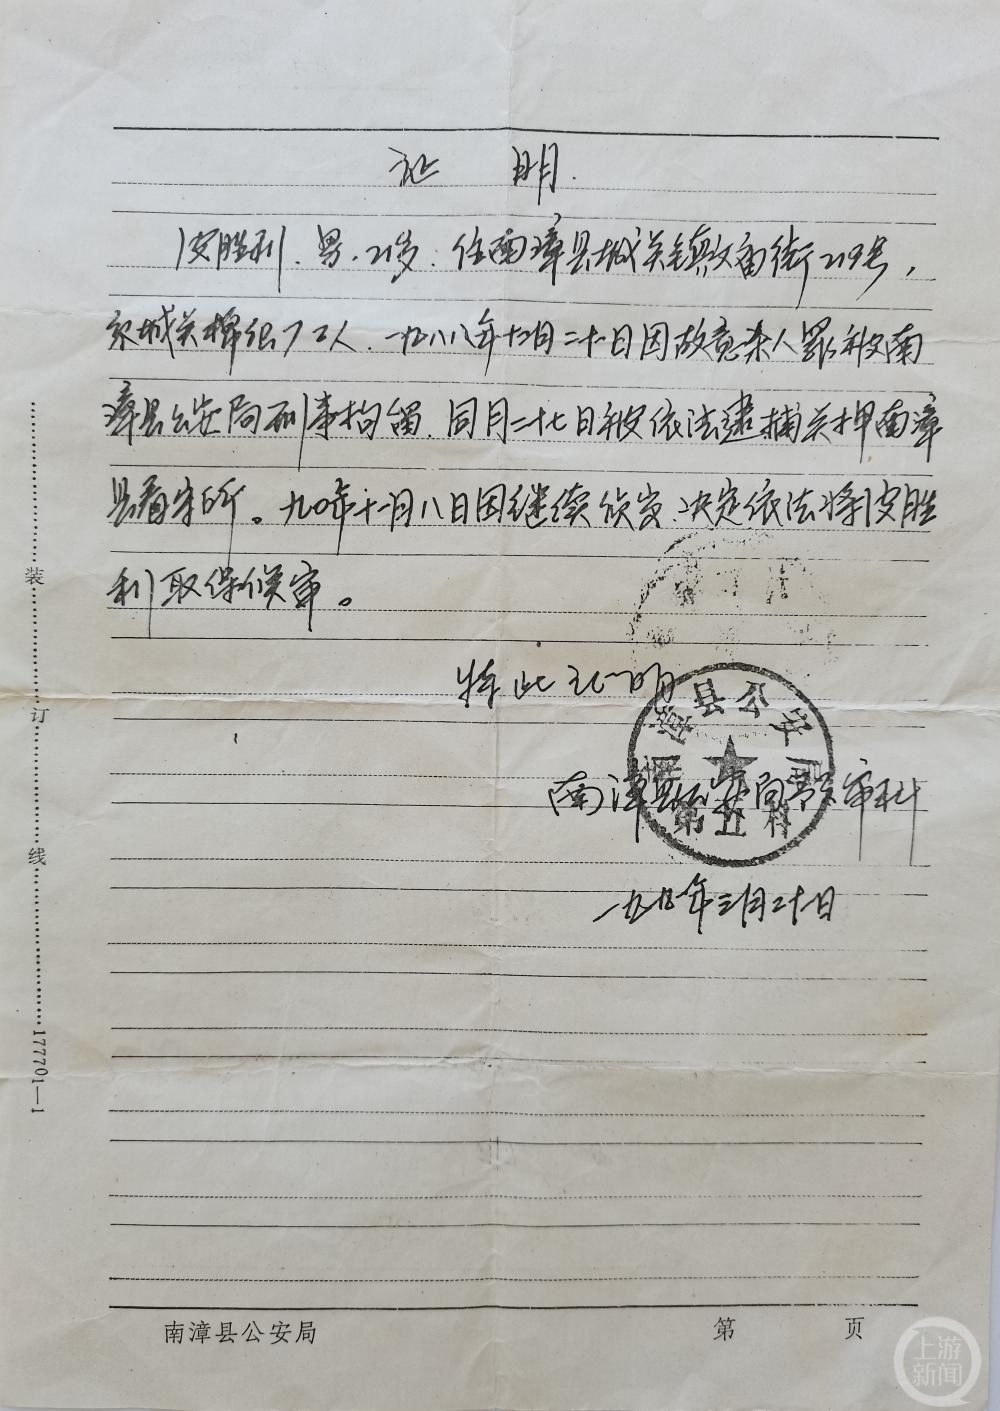 证 明.
皮胜利、男、21岁.住南漳县城关镇文庙街219号,
系城关棉织厂工人.一九八八年十二月二十日因故意杀人罪被南
漳县公安局刑事拘留.同月二十七日被依法逮捕关押南漳
县看守所。九〇年十二月八日因继续侦查、决定依法将皮胜
利取保候审。
特此证明
南漳县公安局
第五科
南漳县公安局预审科
年三月二十一日
装
订
线
177701—1
南漳县公安局 第 页
上游
新闻